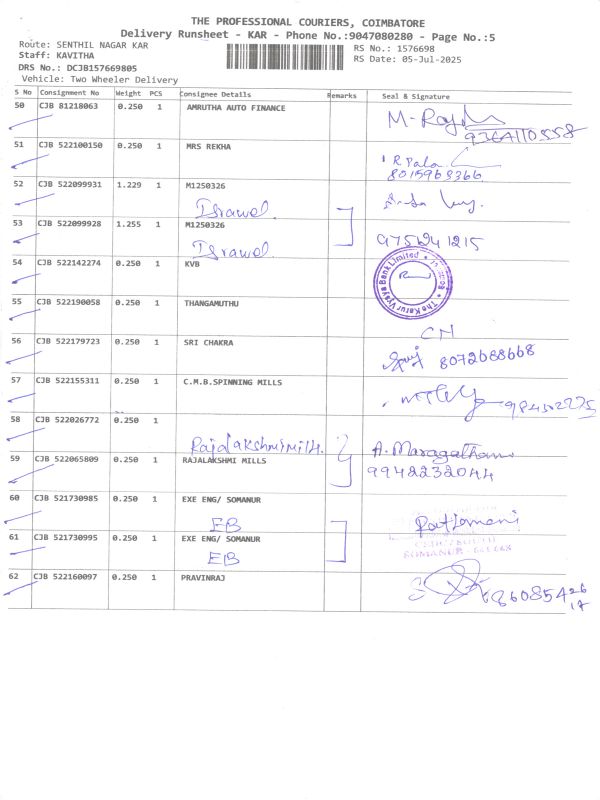 THE PROFESSIONAL COURIERS, COIMBATORE
Delivery Runsheet - KAR - Phone No.:9047080280 - Page No.:5
Route: SENTHIL NAGAR KAR
RS No.: 1576698
Staff: KAVITHA
RS Date: 05-Jul-2025
DRS No.: DCJB157669805
Vehicle: Two Wheeler Delivery
S No Consignment No Weight PCS Consignee Details Remarks Seal & Signature
50 CJB 81218063 0.250 1 AMRUTHA AUTO FINANCE
51 CJB 522100150 0.250 1 MRS REKHA
8015968366
52 CJB 522099931 1.229 1 M1250326
Israwel
53 CJB 522099928 1.255 1 M1250326
Israwel
54 CJB 522142274 0.250 1 KVB
The Karur Vysya Bank Limited
55 CJB 522190058 0.250 1 THANGAMUTHU
CH
56 CJB 522179723 0.250 1 SRI CHAKRA
8072688668
57 CJB 522155311 0.250 1 C.M.B.SPINNING MILLS
58 CJB 522026772 0.250 1
Rajalakshmi mills. A. Maragatham
59 CJB 522065809 0.250 1 RAJALAKSHMI MILLS 9942232044
60 CJB 521730985 0.250 1 EXE ENG/ SOMANUR
EB
61 CJB 521730995 0.250 1 EXE ENG/ SOMANUR
EB
62 CJB 522160097 0.250 1 PRAVINRAJ